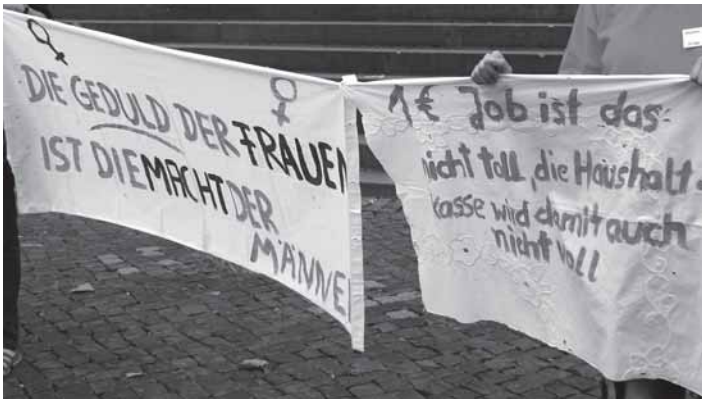 DIE GEDULD DER FRAUEN
IST DIE MACHT DER
MÄNNE
1 € Job ist das
nicht toll, die Haushalt.
kasse wird damit auch
nicht voll